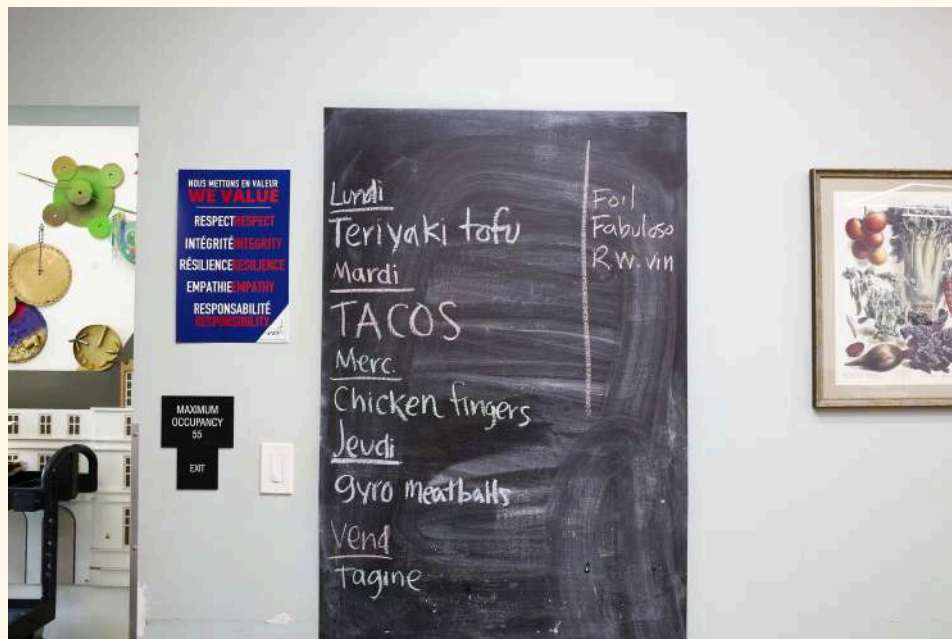 NOUS METTONS EN VALEUR
WE VALUE
RESPECT RESPECT
INTÉGRITÉ INTEGRITY
RÉSILIENCE RESILIENCE
EMPATHIE EMPATHY
RESPONSABILITÉ
RESPONSIBILITY
MAXIMUM
OCCUPANCY
55
EXIT
Lundi
Teriyaki tofu
Mardi
TACOS
Merc.
Chicken fingers
Jeudi
gyro meatballs
Vend
Tagine
Foil
Fabuloso
R.W. vin